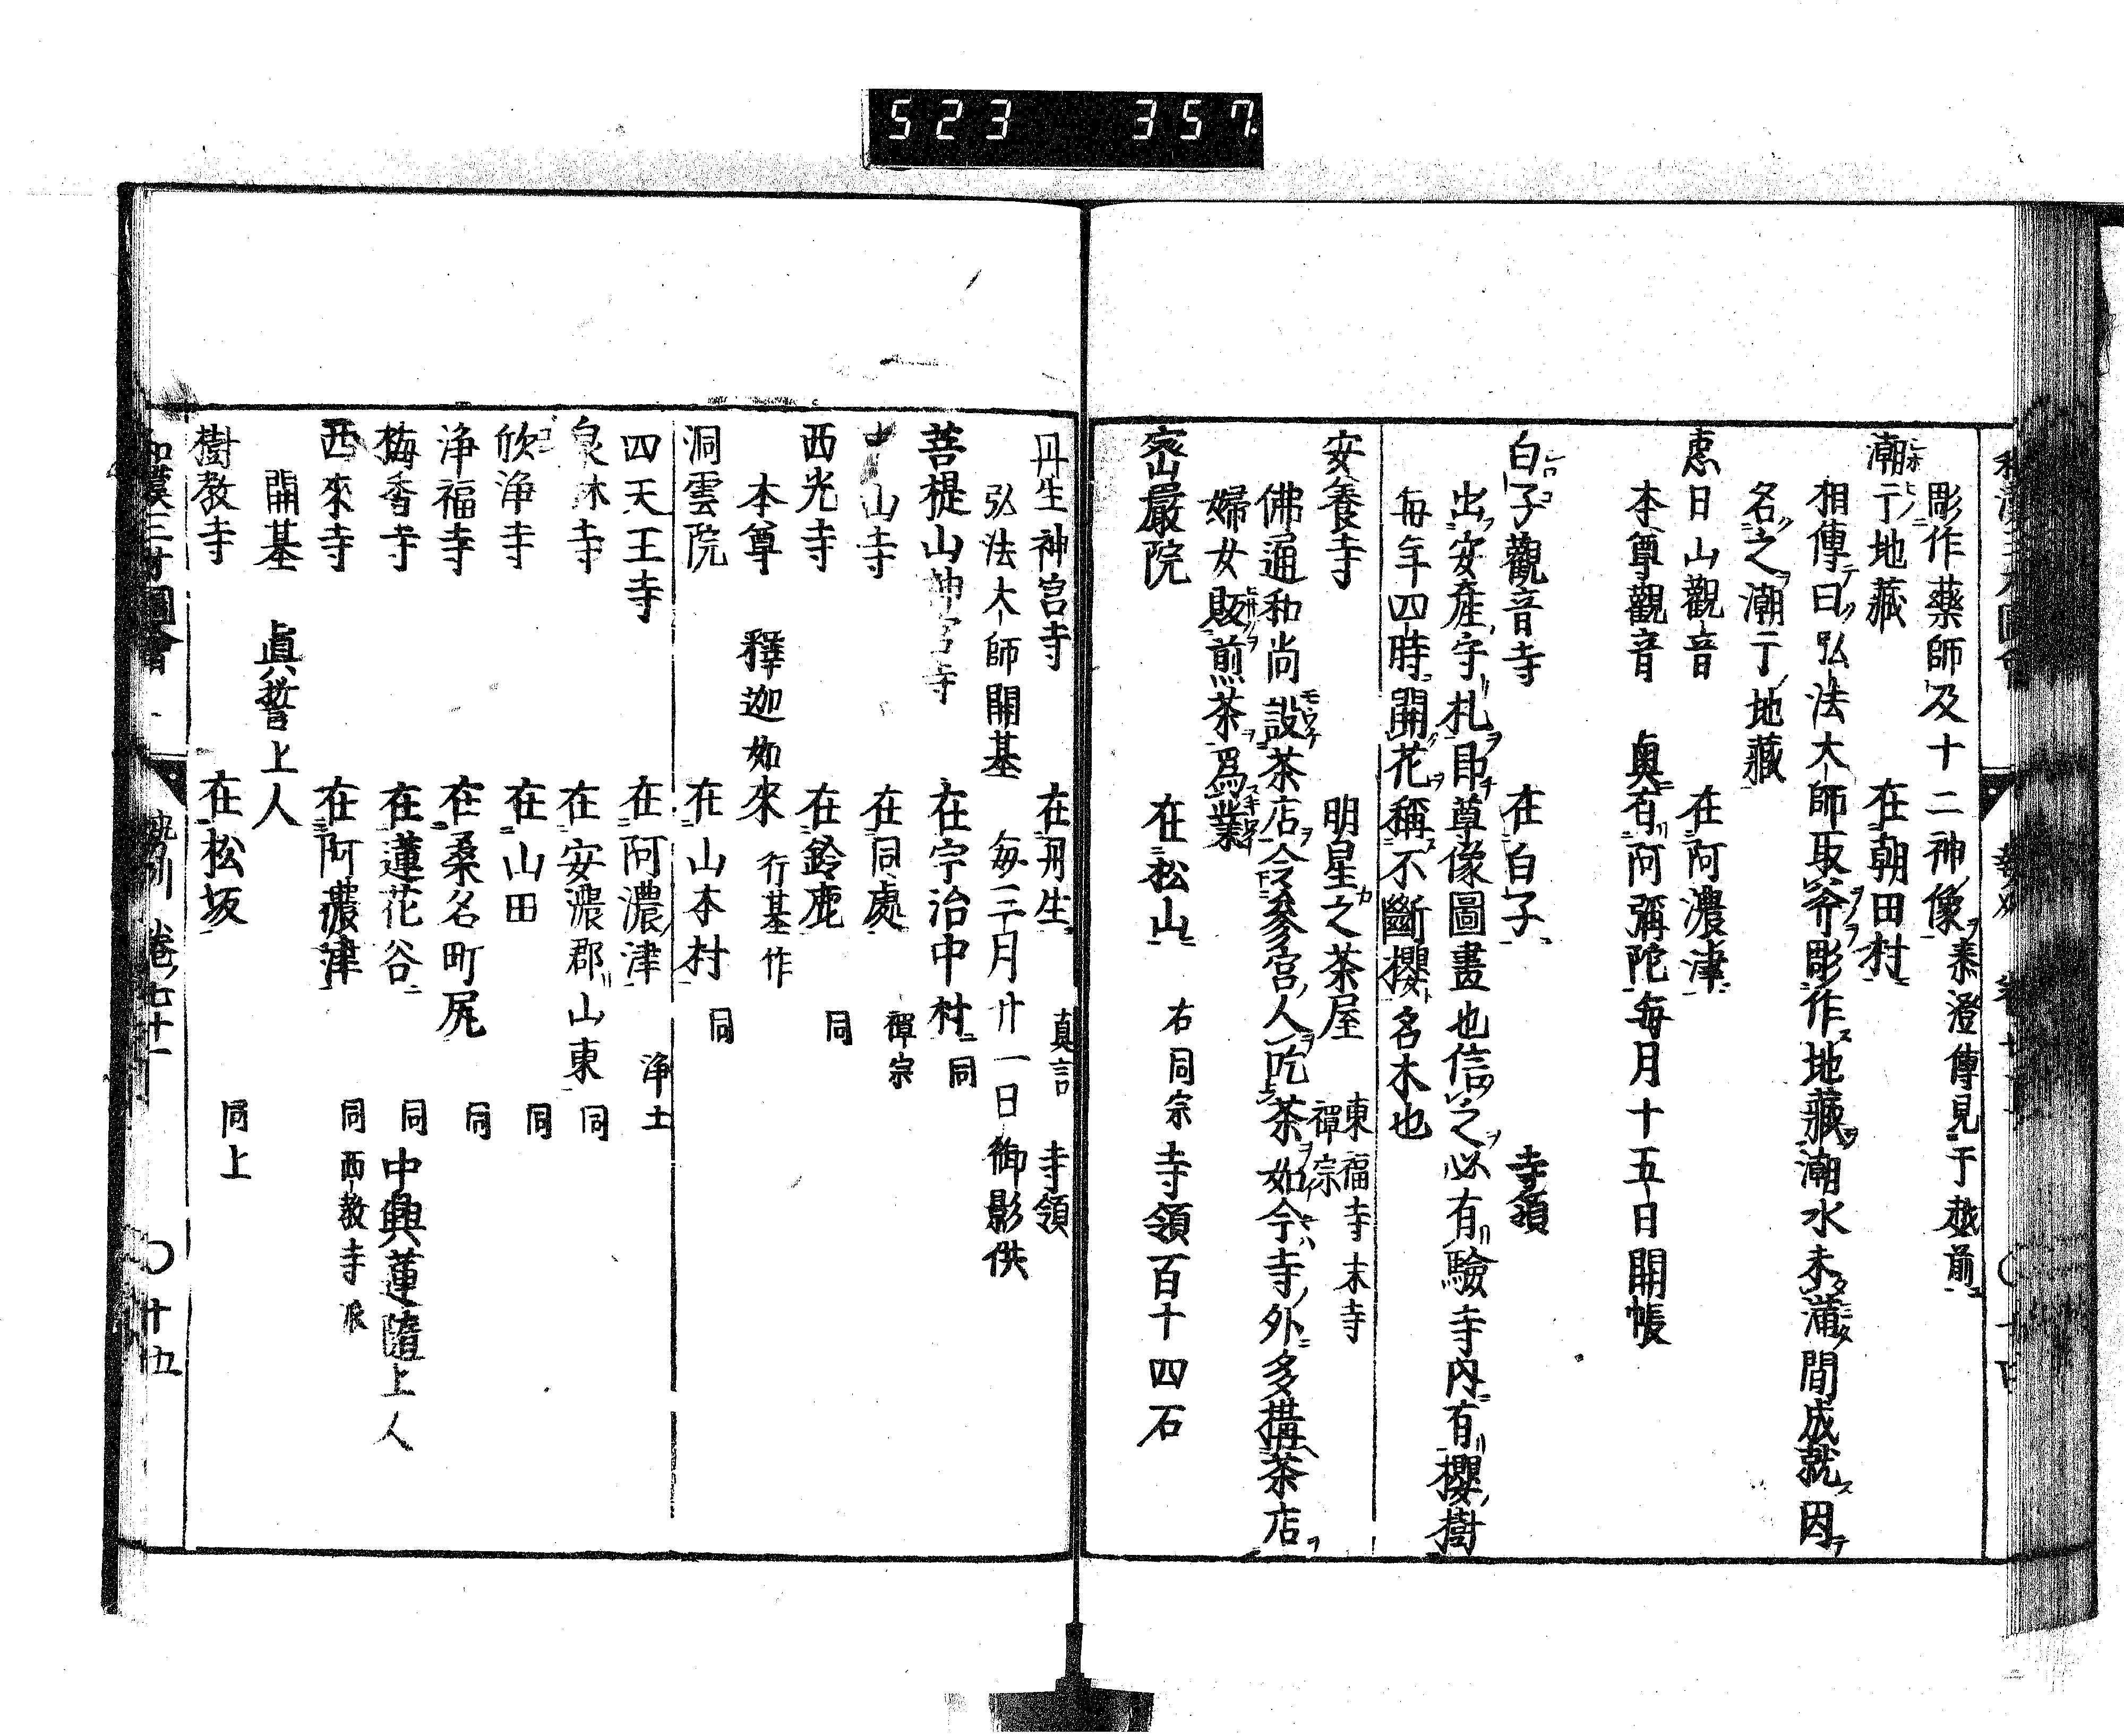 523 357
彫作藥師及十二神像 泰澄傳見于越前
潮干地藏 在朝田村
相傳曰弘法大師取斧彫作地藏潮水未滿間成就因
名之潮干地藏
惠日山觀音 在阿濃津
本尊觀音 奧有阿彌陀毎月十五日開帳
白子觀音寺 在白子 寺領
出安産守札即尊像圖畫也信之必有驗寺内有櫻樹
毎年四時開花稱不斷櫻名木也
安養寺 明星之茶屋 東福寺末寺 禪宗
佛通和尚設茶店令參宮人吃茶如今寺外多搆茶店
婦女販煎茶爲業
密嚴院 在松山 右同宗 寺領百十四石
丹生神宮寺 在丹生 真言 寺領
弘法大師開基 毎三月廿一日御影供
菩提山神宮寺 在宇治中村 同
山寺 在同處 禪宗
西光寺 在鈴鹿 同
本尊 釋迦如來 行基作
洞雲院 在山本村 同
四天王寺 在阿濃津 浄土
泉休寺 在安濃郡山東 同
欣浄寺 在山田 同
浄福寺 在桑名町尻 同
梅香寺 在蓮花谷 同 中興蓮隨上人
西來寺 在阿濃津 同 西教寺派
開基 眞誓上人
樹敎寺 在松坂 同上
和漢三才圖會 勢州 卷ノ七十一 〇十五